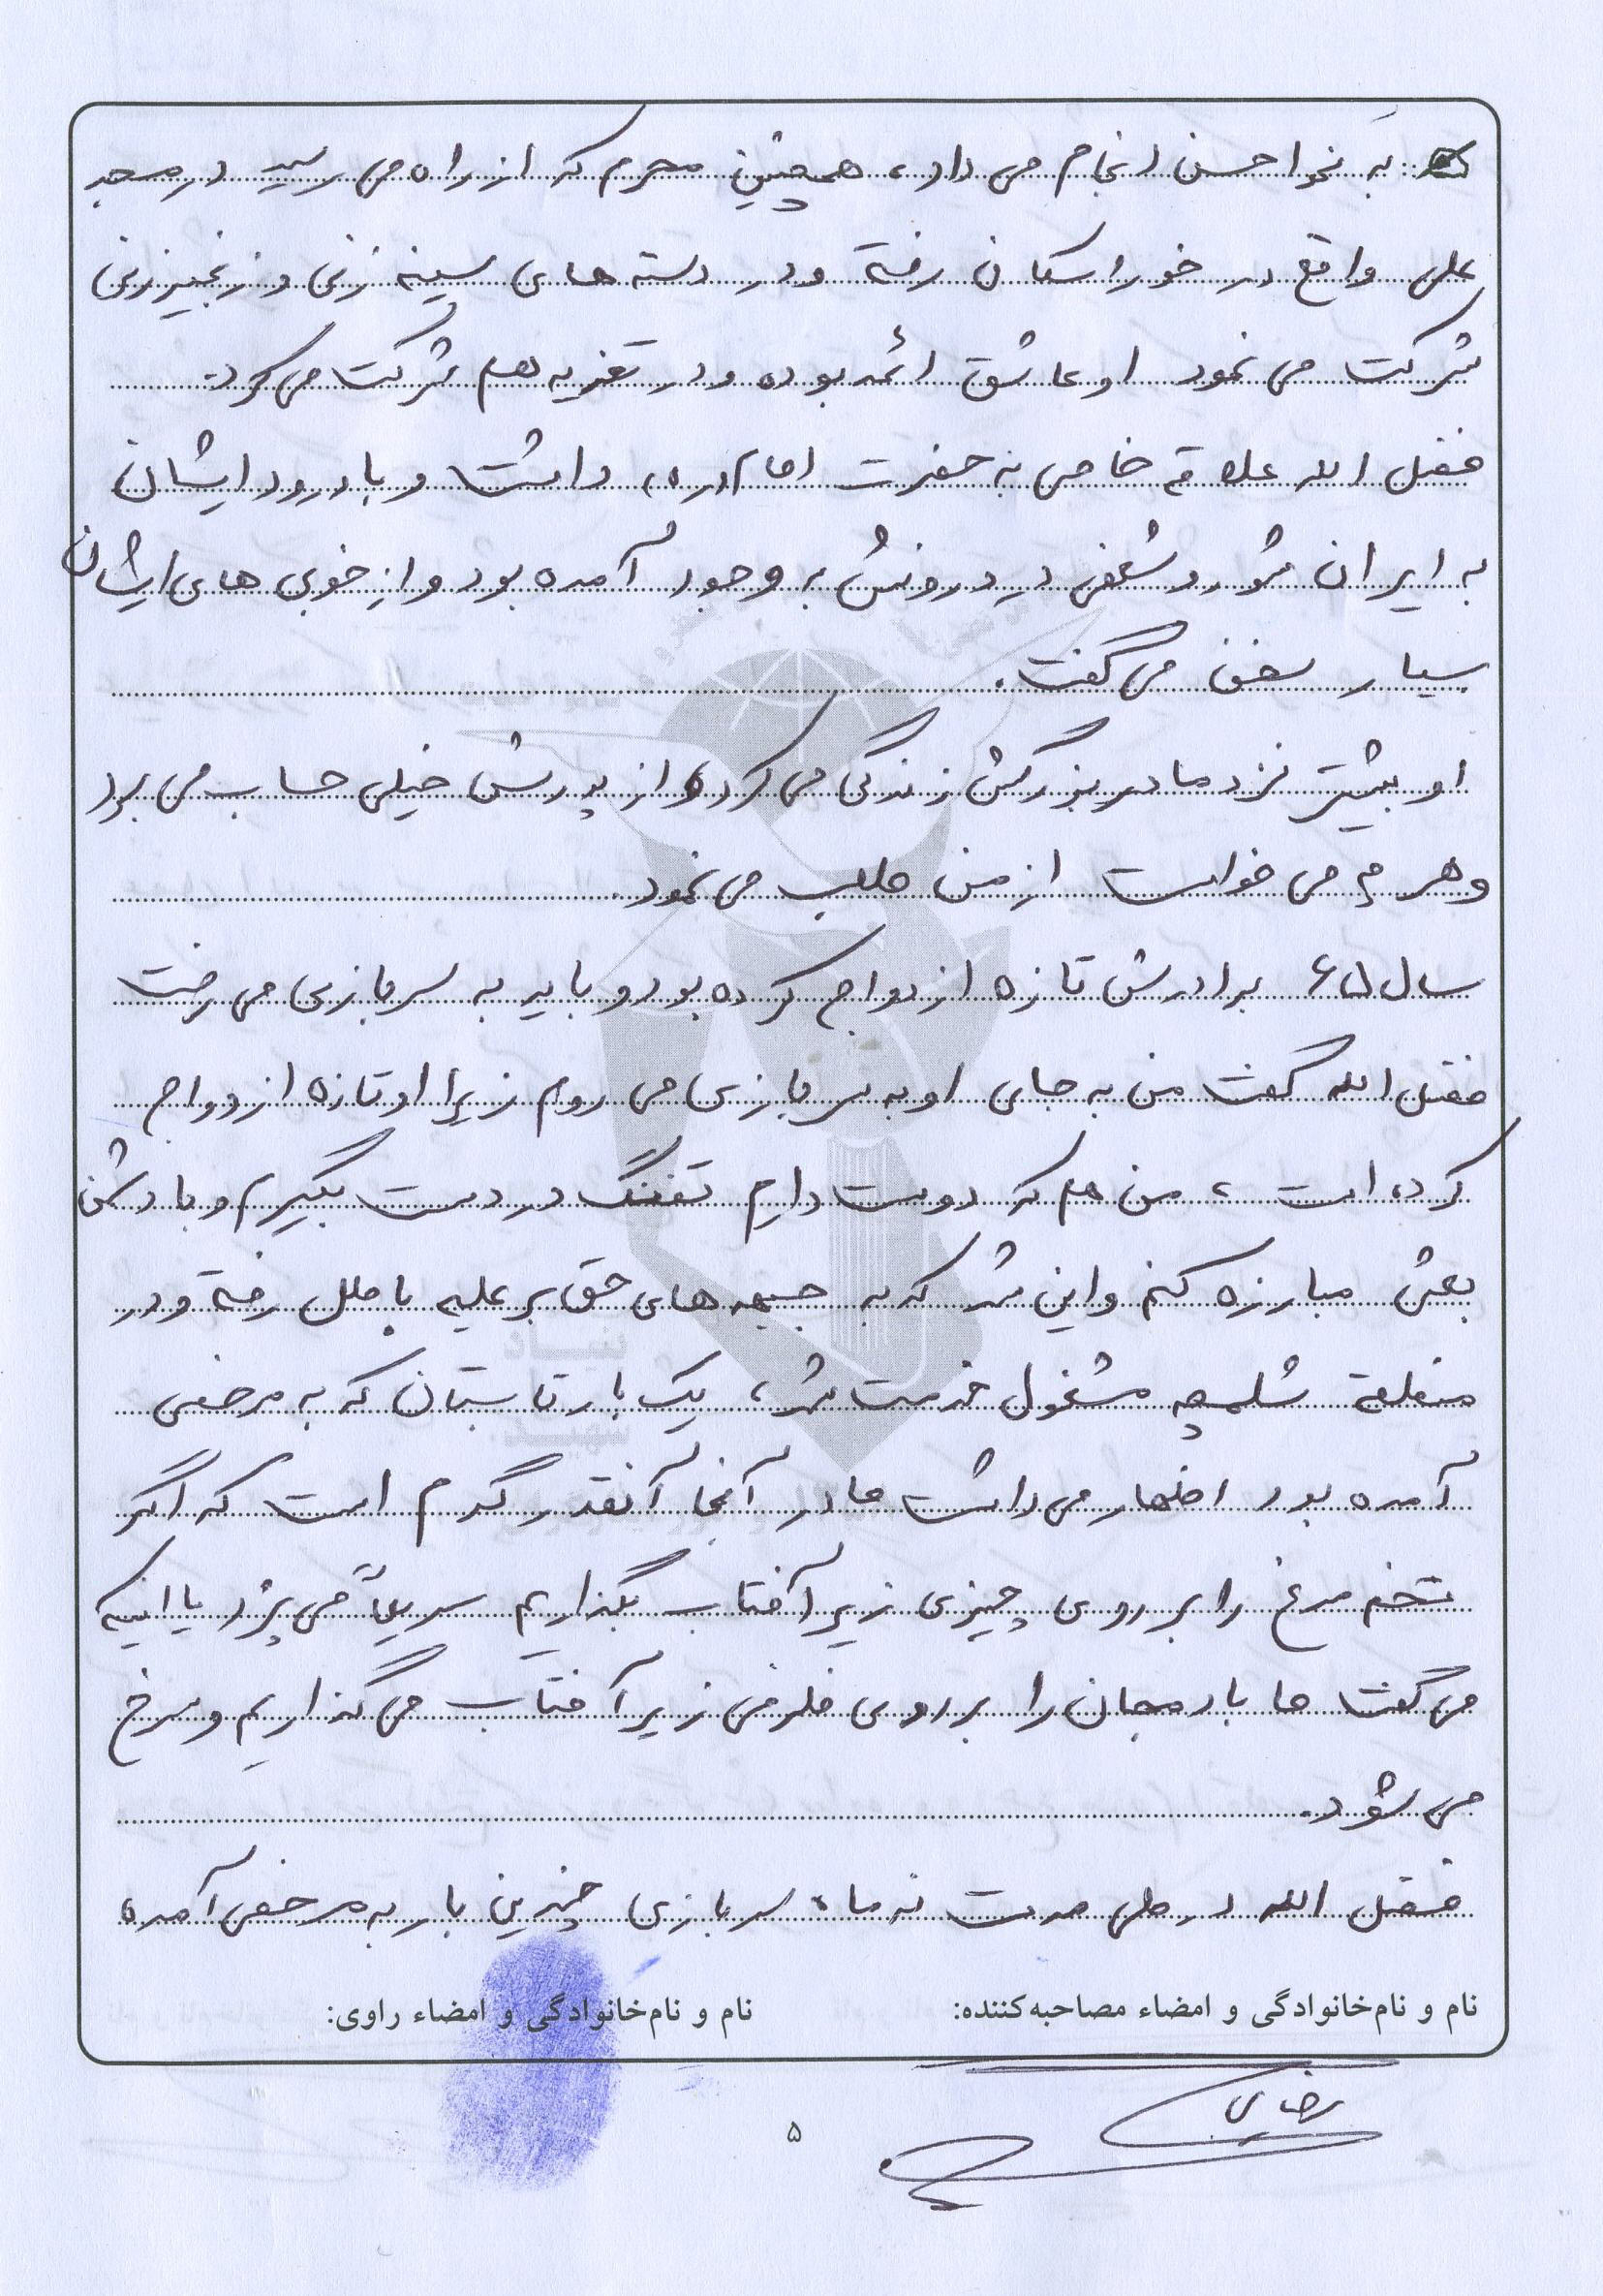 به نحو احسن انجام می داد، همچنین محرم که از راه می رسید در مسجد
علی واقع در خوراسگان رفته ودر دسته های سینه زنی و زنجیرزنی
شرکت می نمود او عاشق ائمه بوده ودر تعزیه هم شرکت می کرد.
فضل الله علاقه خاصی به حضرت امام(ره) داشت و با ورود ایشان
به ایران شور و شعفی در درونش به وجود آمده بود و از خوبی های ایشان
بسیار سخن می گفت.
او بیشتر نزد مادربزرگش زندگی می کرد و از پدرش خیلی حساب می برد
وهر چه می خواست از من طلب می نمود.
سال ۶۵ برادرش تازه ازدواج کرده بود و باید به سربازی می رفت
فضل الله گفت من به جای او به سربازی می روم زیرا او تازه ازدواج
کرده است، من هم که دوست دارم تفنگ در دست بگیرم و با دشمن
بعثی مبارزه کنم واین شد که به جبهه های حق بر علیه باطل رفته ودر
منطقه شلمچه مشغول خدمت شد، یک بار تابستان که به مرخصی
آمده بود اظهار می داشت مادر آنجا آنقدر گرم است که اگر
تخم مرغ را بر روی چیزی زیر آفتاب بگذاریم سریعاً می پزد یا اینکه
می گفت ما بادمجان را بر روی ظرفی زیر آفتاب می گذاریم و سرخ
می شود.
فضل الله در طی مدت نه ماه سربازی چندین بار به مرخصی آمده
نام و نام‌خانوادگی و امضاء مصاحبه‌کننده: نام و نام‌خانوادگی و امضاء راوی:
رضایی
۵